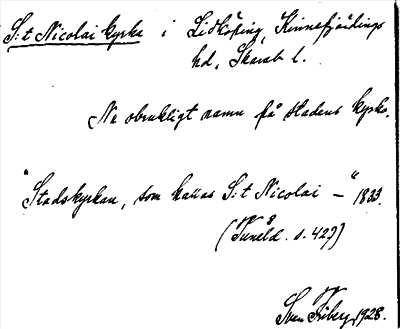 S:t Nicolai kyrka i Lidköping, Kinnefjärdings
hd, Skarab. l.
Nu obrukligt namn på stadens kyrka.
"Stadskyrkan, som kallas S:t Nicolai –" 1833.
(Tuneld. IV 3 s. 427)
Sven Friberg, 1928.